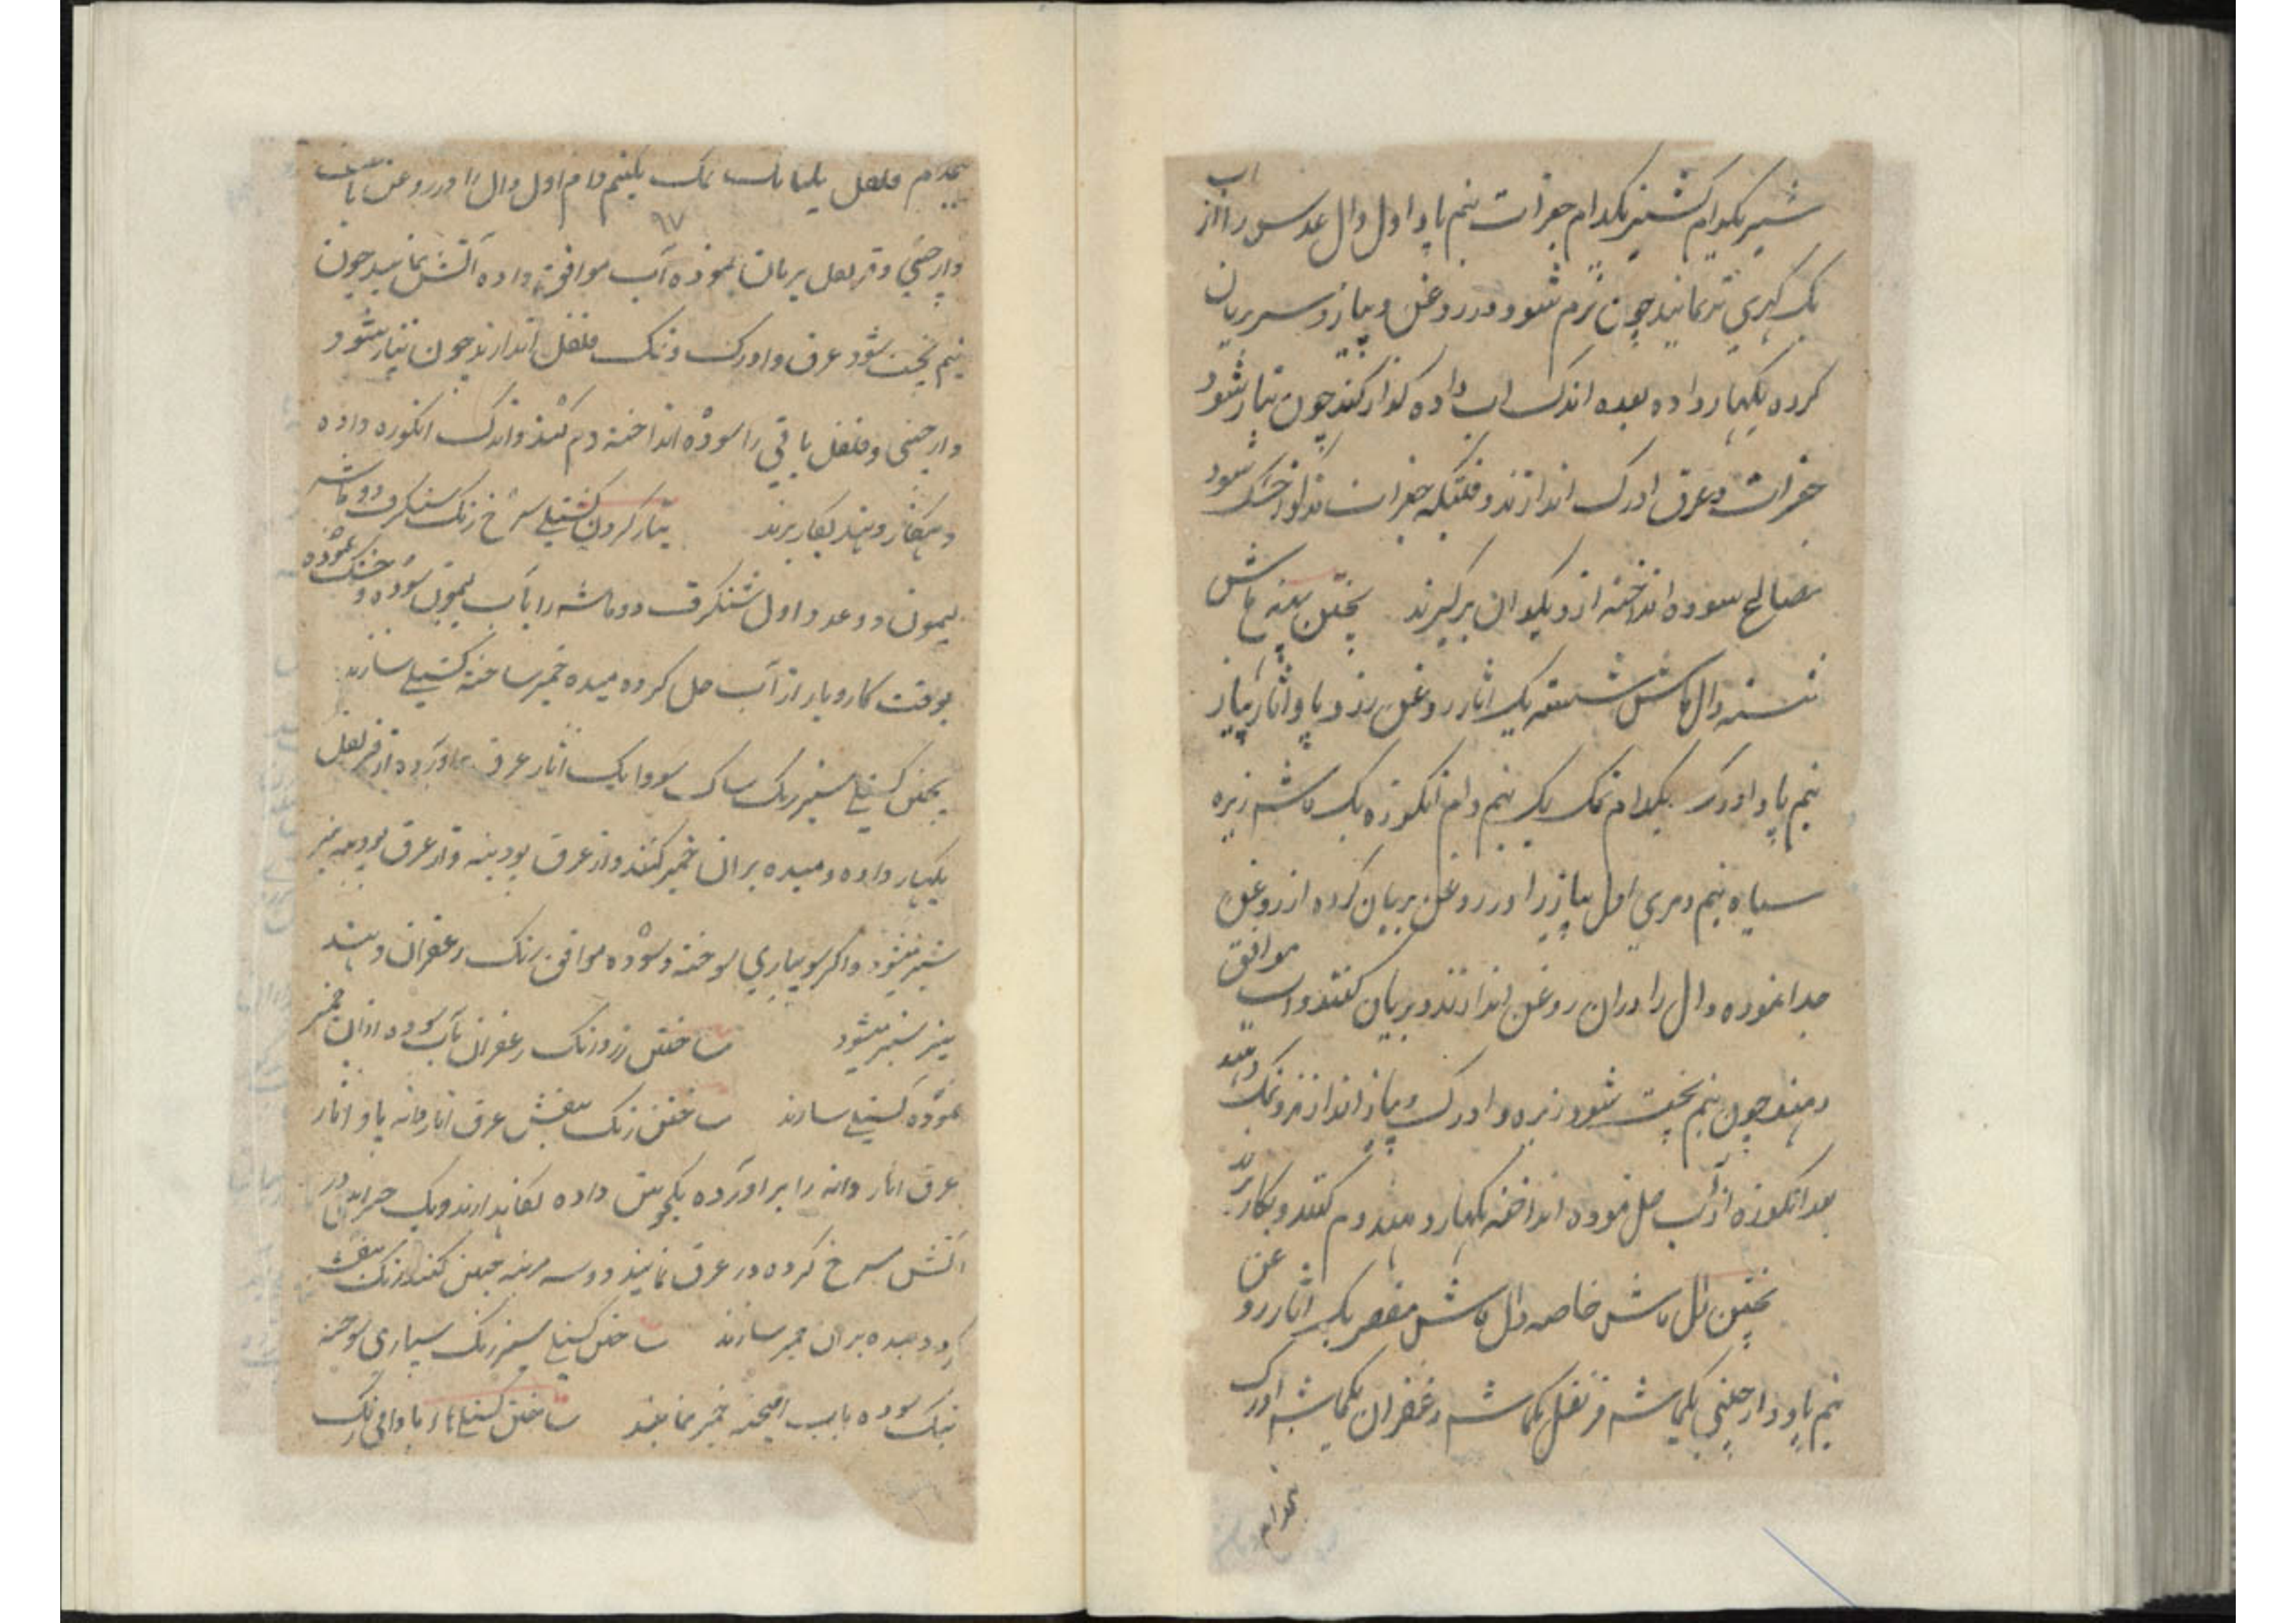 شیر یکدام کشنیز یکدام جغرات نیم پاو اول دال عدس را از آب
یک گهری تر نمایند چون نرم شود در روغن و پیاز و سیر بریان
کرده بگهار داده بعده اندک اب داده کداز کنند چون تیار شود
جغرات و عرق ادرک اندازند و قتیکه جغرات مذکور خشک شود
مصالح سوده انداخته از دیکدان برگیرند پختن پهنه ماش
شسته دال ماش شسته یک اثار روغن زرد پاو اثار پیاز
نیم پاو ادرک یکدام نمک یک نیم دام انکوزه یک ماشه زیره
سیاه نیم دمری اول پیاز را در روغن بریان کرده از روغن
جدا نموده دال را دران روغن اندازند و بریان کنند و اب موافق
دهند چون نیم پخت شود زیره و ادرک و پیاز اندازند و نمک دهند
بعد انکوزه از آب حل نموده انداخته بگهار دهند و دم کنند و بکار برند
پختن دال ماش خاصه دال ماش مقصر یک اثار روغن
نیم پاو دارچینی یکماشه قرنفل یکماشه زعفران یکماشه ادرک
یکدام
یکدام فلفل یکماشه نمک یکنیم دام اول دال را در روغن با
۹۷
دارچینی و قرنفل بریان نموده آب موافق داده آتش نمایند چون
نیم پخت شود عرق ادرک و نمک فلفل اندازند چون تیار شود
دارچینی و فلفل باقی را سوده انداخته دم کنند و اندک انکوزه داده
و بگهار دهند بکار برند تیار کردن کشتیلی سرخ رنک شنکرف دو ماشه
لیمون دو عدد اول شنکرف دو ماشه را بآب لیمون سوده و خشک نموده
بوقت کاروبار از آب حل کرده میده خمیر ساخته کشتیلی سازند
پختن کشتیلی سبز رنک ساک سووا یک اثار عرق برآورده از قرنفل
بگهار داده و میده بران خمیر کنند و از عرق پودینه و از عرق پودینه نیز
سبز میشود و اکر سپیاری سوخته و سوده موافق رنک زعفران دهند
نیز سبز میشود ساختن زرد رنک زعفران بآب سوده ازان خمیر
نموده کشتیلی سازند ساختن رنک بنفش عرق انار دانه پاو اثار
عرق انار دانه را برآورده یکجوش داده نکاهدارند و یک در
آتش سرخ کرده در عرق نمایند دو سه مرتبه چنین کنند رنک بنفش
کردد میده بران خمیر سازند ساختن کشتیلی سبز رنک سپیاری سوخته
نیک سوده بآب امیخته خمیر نمایند ساختن کشتیلی بادامی رنک